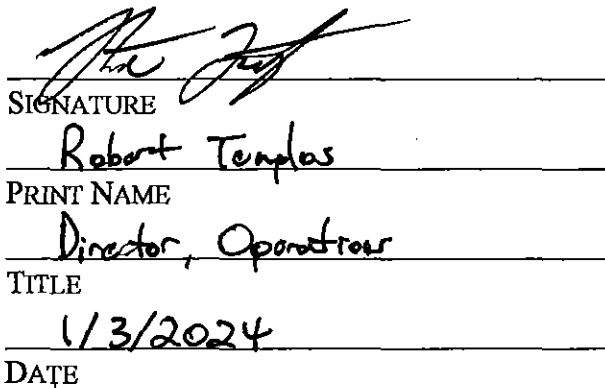 SIGNATURE
Robert Templos
PRINT NAME
Director, Operations
TITLE
1/3/2024
DATE